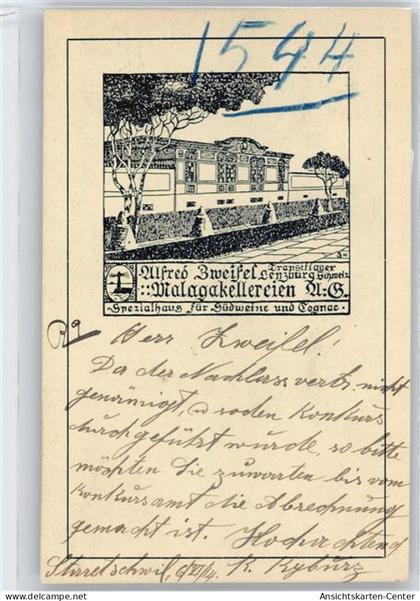 1544
Alfred Zweifel Transitlager
Lenzburg Schweiz
::Malagakellereien A.-G.
·Spezialhaus für Südweine und Cognac·
Herr Zweifel!
Da der Nachlass vertr. nicht
genämigt, u
Konkurs
durchgeführt wurde, so bitte
möchten Sie zuwarten bis vom
Konkursamt die Abrechnung
gemacht ist. Hochachtend
K. Kyburz
© Ansichtskarten-Center
Ansichtskarten-Center